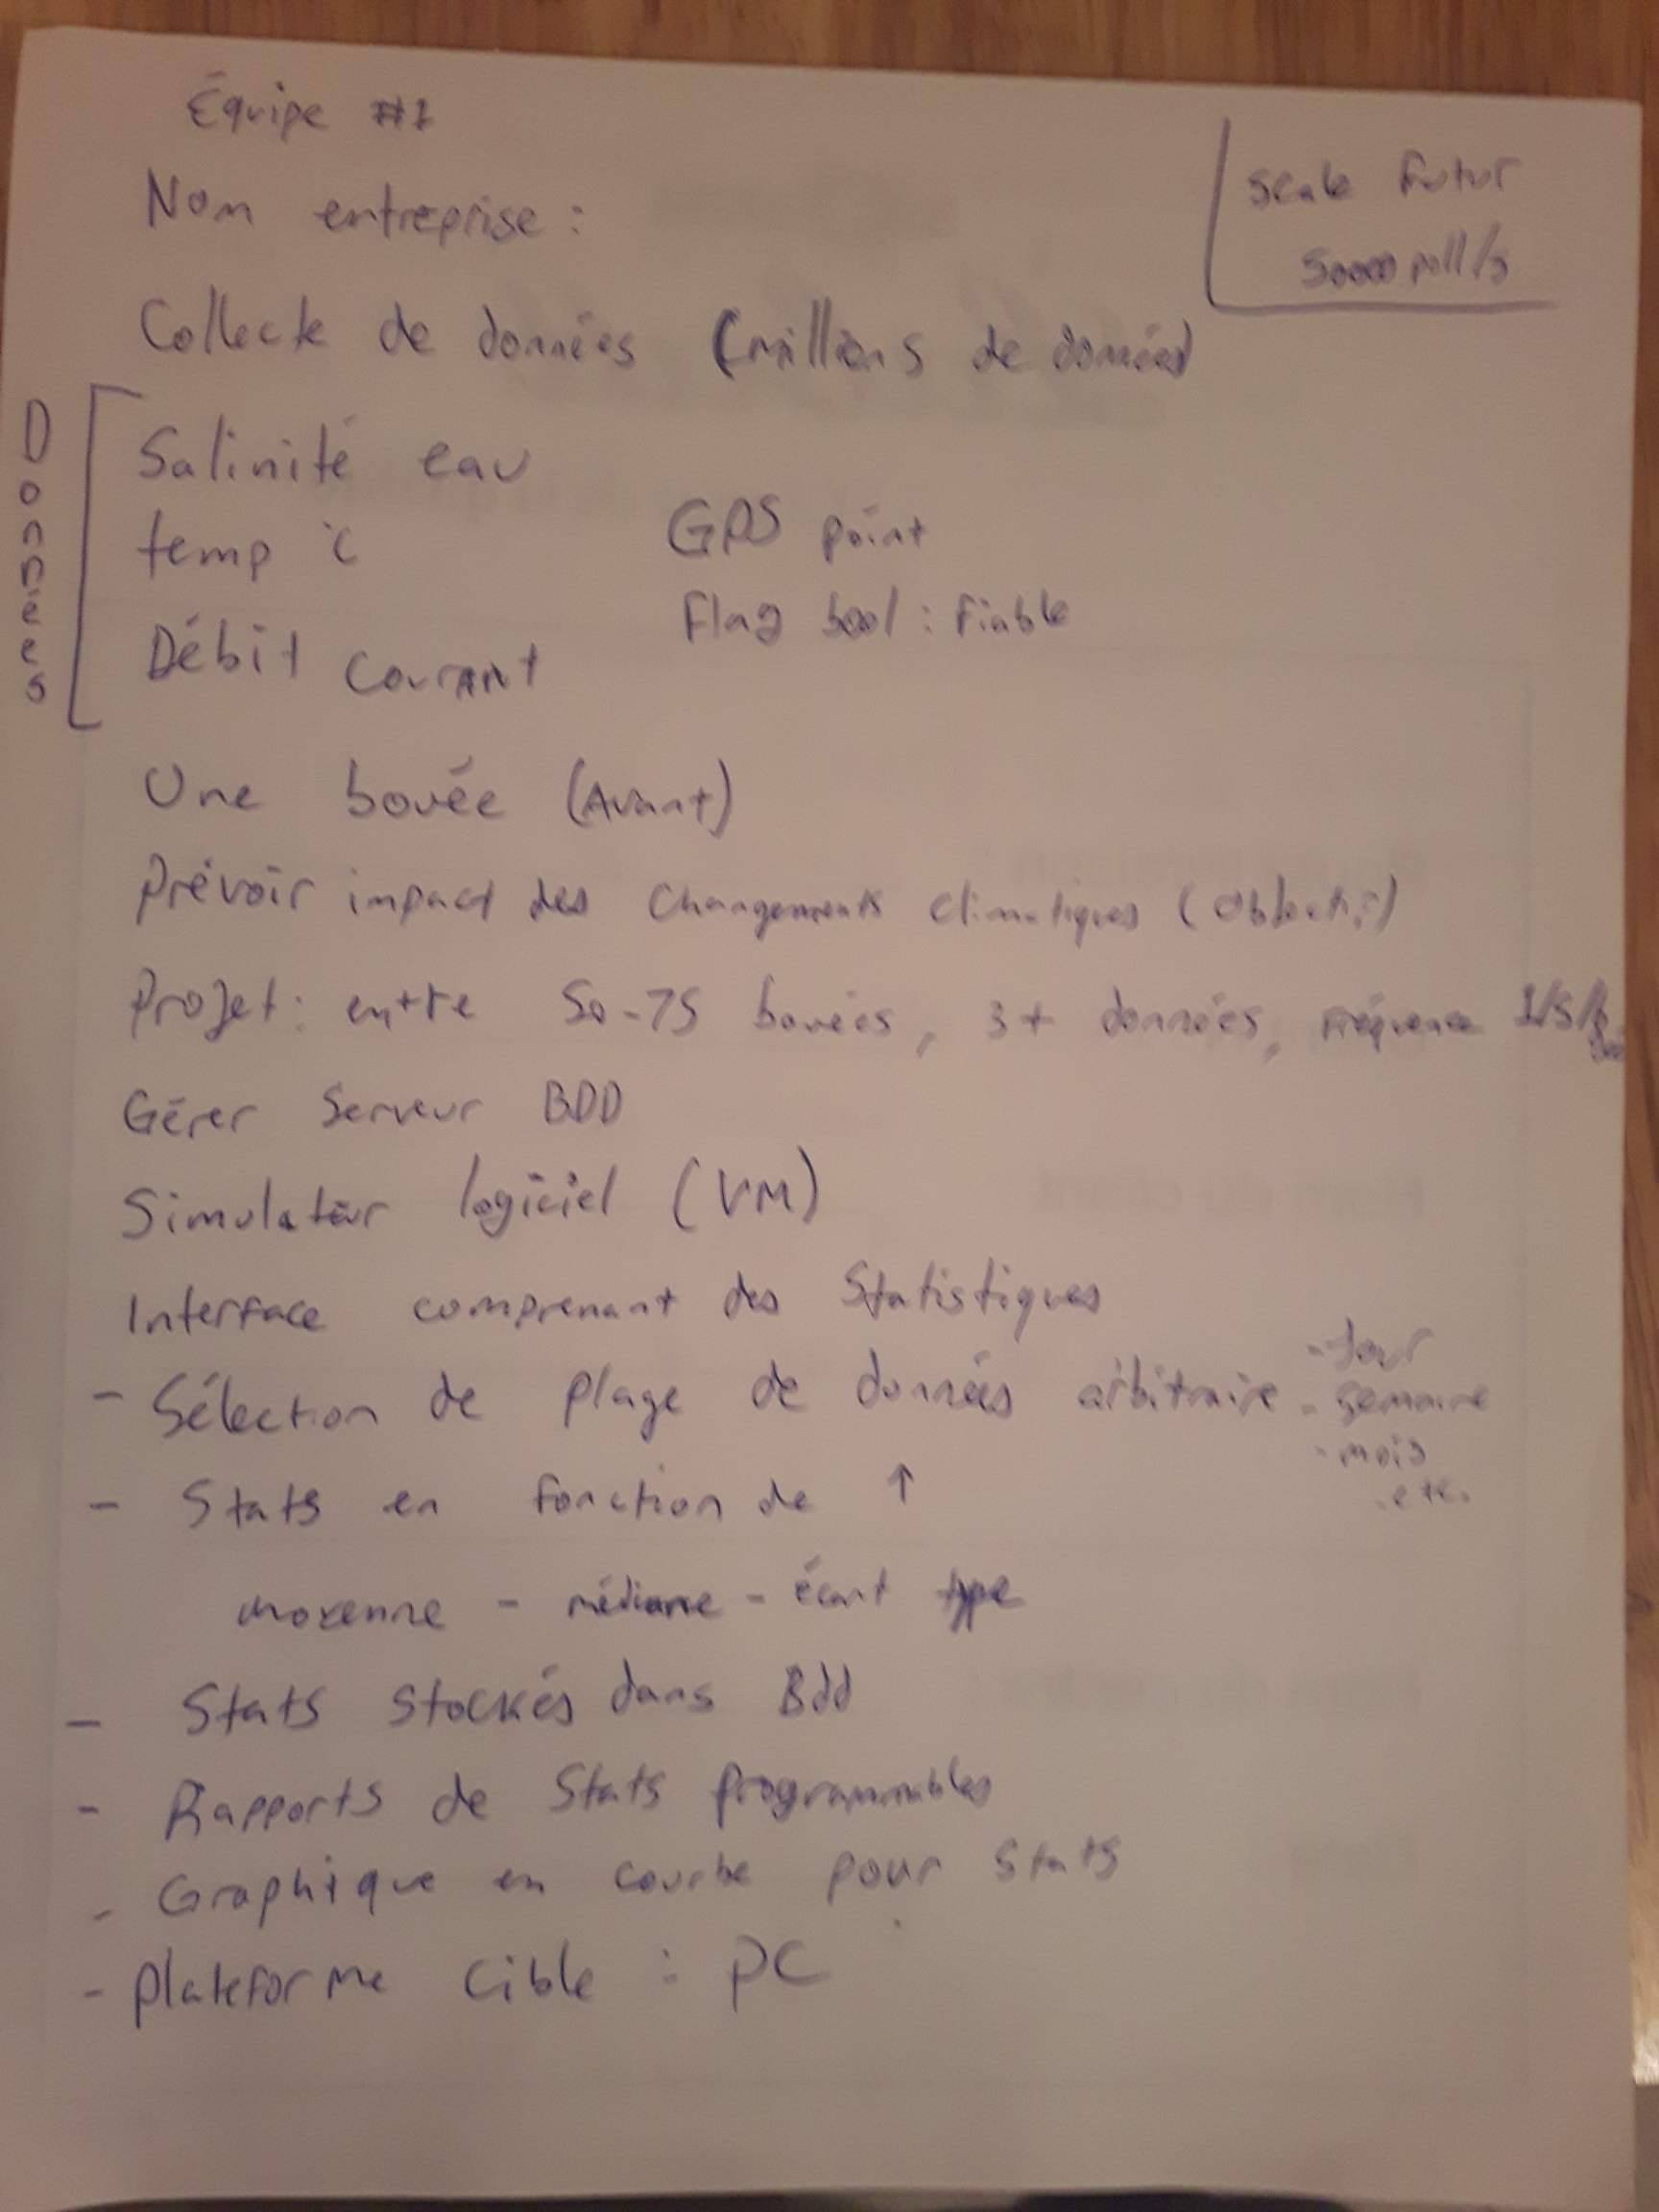 Équipe #1
scale futur
50000 poll/s
Nom entreprise :
Collecte de données (millions de données)
Données
Salinité eau
temp °C
GPS point
Débit courant
Flag bool : fiable
Une bouée (Avant)
Prévoir impact des changements climatiques (Objectif)
Projet : entre 50-75 bouées, 3+ données, fréquence 1/s/
Gérer Serveur BDD
Simulateur logiciel (VM)
Interface comprenant des Statistiques
- Sélection de plage de données arbitraire
- Jour
- semaine
- mois
- etc.
- Stats en fonction de ↑
moyenne - médiane - écart type
- Stats stockés dans Bdd
- Rapports de Stats programmables
- Graphique en courbe pour stats
- Plateforme cible : PC